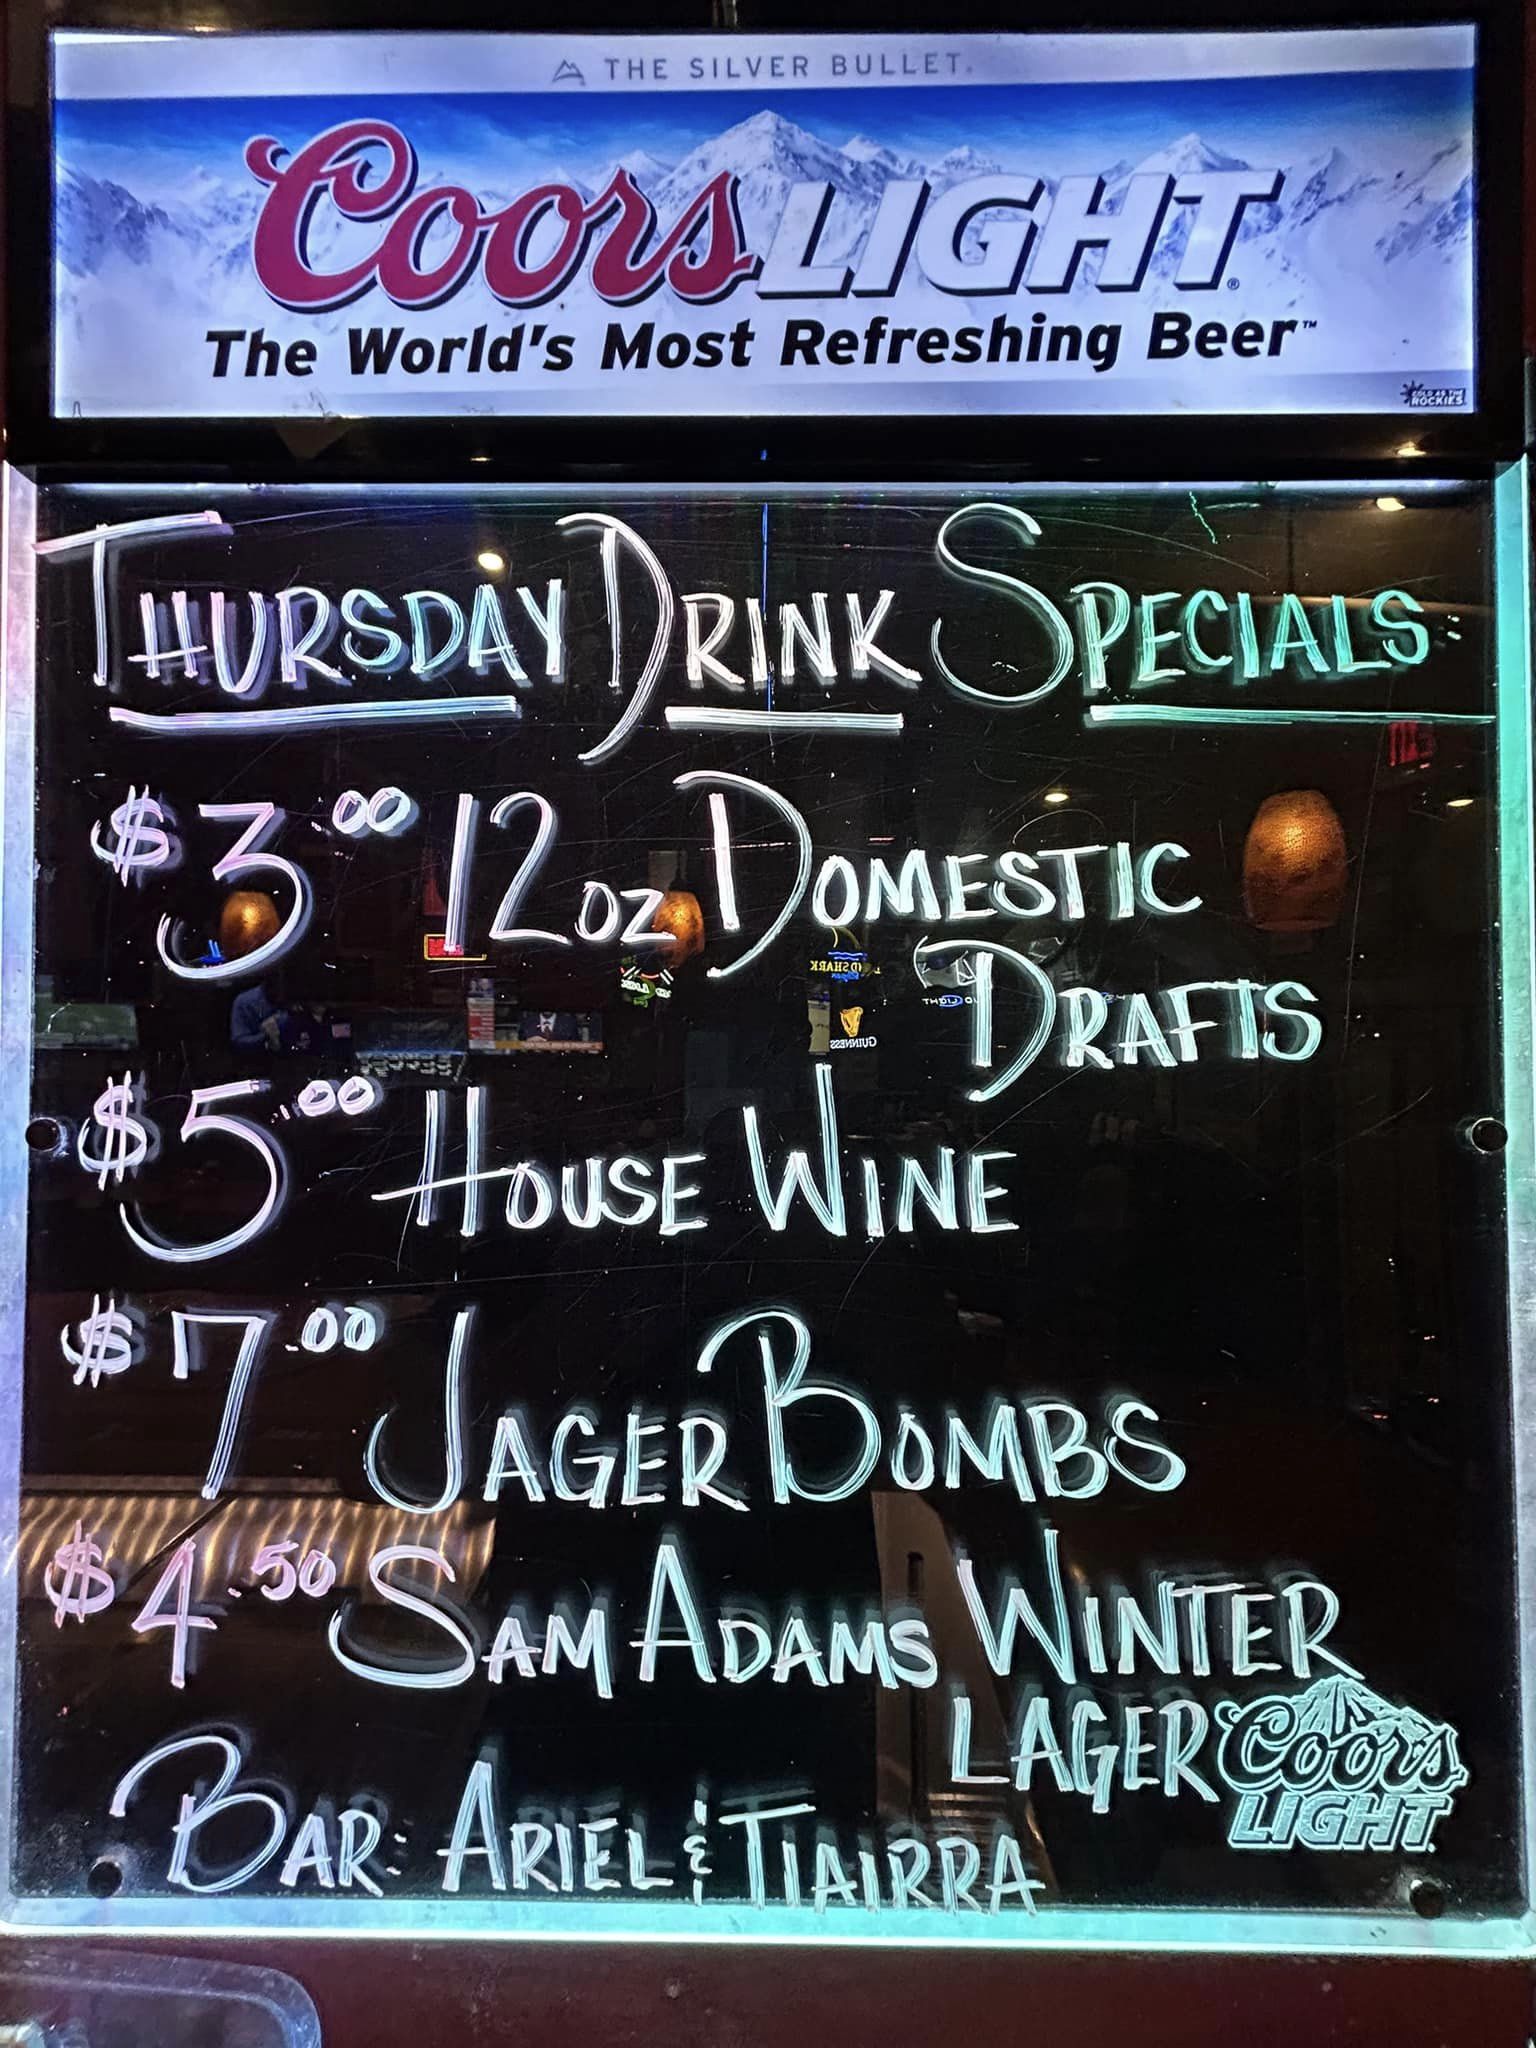 THE SILVER BULLET.
Coors LIGHT®
The World's Most Refreshing Beer™
COLD AS THE
ROCKIES
THURSDAY DRINK SPECIALS:
$3.00 12oz DOMESTIC
DRAFTS
$5.00 HOUSE WINE
$7.00 JAGER BOMBS
$4.50 SAM ADAMS WINTER
LAGER
Coors
LIGHT
BAR: ARIEL & TIAIRRA
GUINNESS